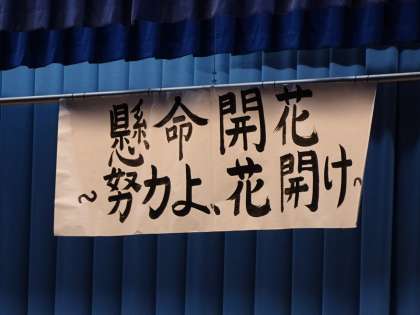 懸命開花
~努力よ、花開け~